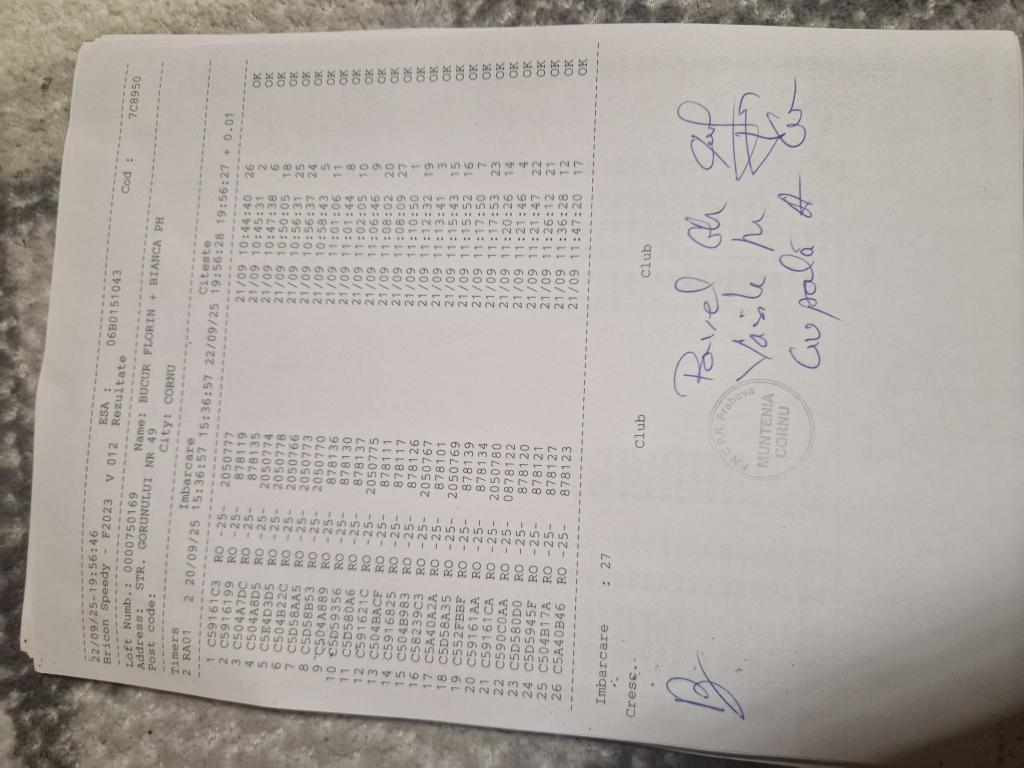 22/09/25-19:56:46
Bricon Speedy - F2023 V 012 ESA : 06B0151043
Rezultate
Loft Numb.: 0000750169 Name: BUCUR FLORIN + BIANCA PH Cod : 7C8950
Address: STR. GORUNULUI NR 49
Post code: City: CORNU
Timers Imbarcare Citeste
2 RA01 2 20/09/25 15:36:57 15:36:57 22/09/25 19:56:28 19:56:27 + 0.01
1 C59161C3 RO -25- 2050777 21/09 10:44:40 26 OK
2 C5916199 RO -25- 878119 21/09 10:45:31 2 OK
3 C504A7DC RO -25- 878135 21/09 10:47:38 6 OK
4 C504A8D5 RO -25- 2050774 21/09 10:50:05 18 OK
5 C5E4D3D5 RO -25- 2050778 21/09 10:56:31 25 OK
6 C504B22C RO -25- 2050766 21/09 10:56:37 24 OK
7 C5D58AA5 RO -25- 2050773 21/09 10:58:43 5 OK
8 C5D58B53 RO -25- 2050770 21/09 11:01:06 11 OK
9 C504A889 RO -25- 878136 21/09 11:01:44 8 OK
10 C5D59356 RO -25- 878130 21/09 11:02:05 10 OK
11 C5D580A6 RO -25- 878137 21/09 11:06:46 9 OK
12 C591621C RO -25- 2050775 21/09 11:08:02 20 OK
13 C504BACF RO -25- 878111 21/09 11:08:09 27 OK
14 C5916825 RO -25- 878117 21/09 11:10:50 1 OK
15 C504B983 RO -25- 878126 21/09 11:12:32 19 OK
16 C58239C3 RO -25- 2050767 21/09 11:13:41 3 OK
17 C5A40A2A RO -25- 878101 21/09 11:15:43 15 OK
18 C5D58A35 RO -25- 2050769 21/09 11:15:52 16 OK
19 C552FBBF RO -25- 878139 21/09 11:17:50 7 OK
20 C59161AA RO -25- 878134 21/09 11:17:53 23 OK
21 C59161CA RO -25- 2050780 21/09 11:20:26 14 OK
22 C590C0AA RO -25- 0878122 21/09 11:21:46 4 OK
23 C5D580D0 RO -25- 878120 21/09 11:21:47 22 OK
24 C5D5945F RO -25- 878121 21/09 11:26:12 21 OK
25 C504B17A RO -25- 878127 21/09 11:36:28 12 OK
26 C5A40B46 RO -25- 878123 21/09 11:47:20 17 OK
Imbarcare : 27
Cresc. Club Club
Pavel Gh
Vasile
F.N.C.P.R. Prahova
MUNTENIA
CORNU